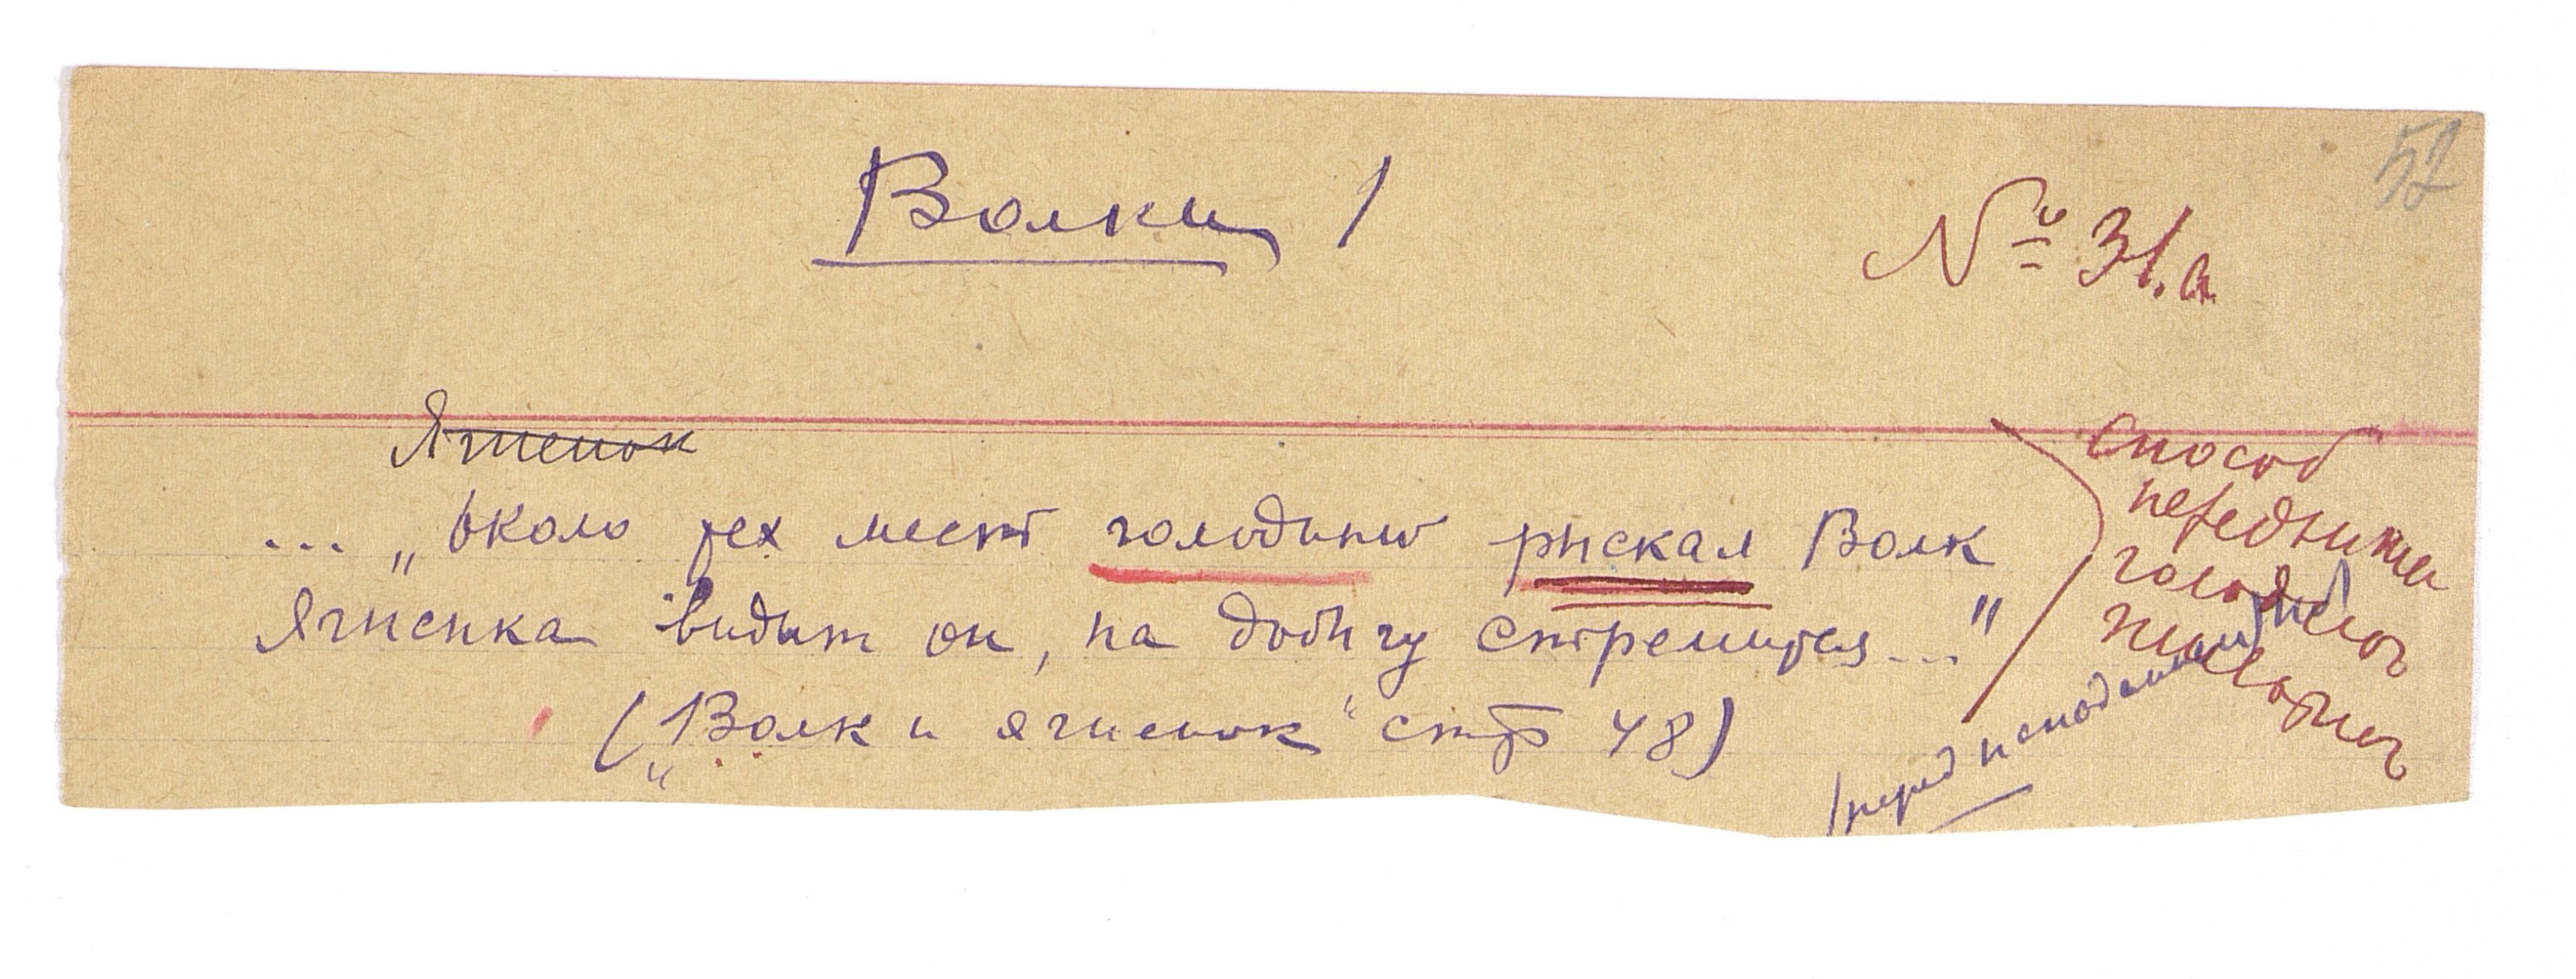 52
Волки 1
№ 31.а
Ягненок
... „около тех мест голодный рыскал Волк
Ягненка видит он, на добычу стремится..."
(„Волк и ягненок" стр 48)
способ
передвижен
голодного
животного
перед